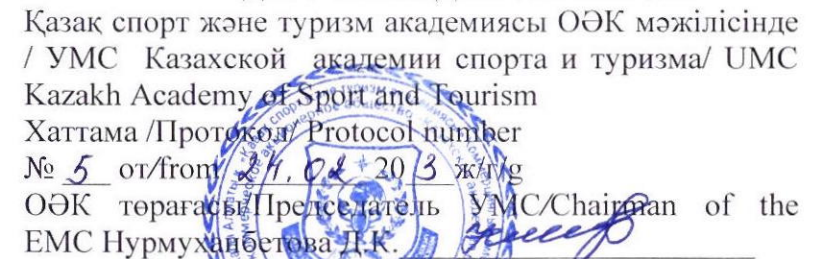 Қазақ спорт және туризм академиясы ОӘК мәжілісінде
/ УМС Казахской академии спорта и туризма/ UMC
Kazakh Academy of Sport and Tourism
Хаттама /Протокол/ Protocol number
№ 5 от/from 24.02 20 3 ж/г/g
ОӘК төрағасы/Председатель УМС/Chairman of the
ЕМС Нурмуханбетова Д.К.